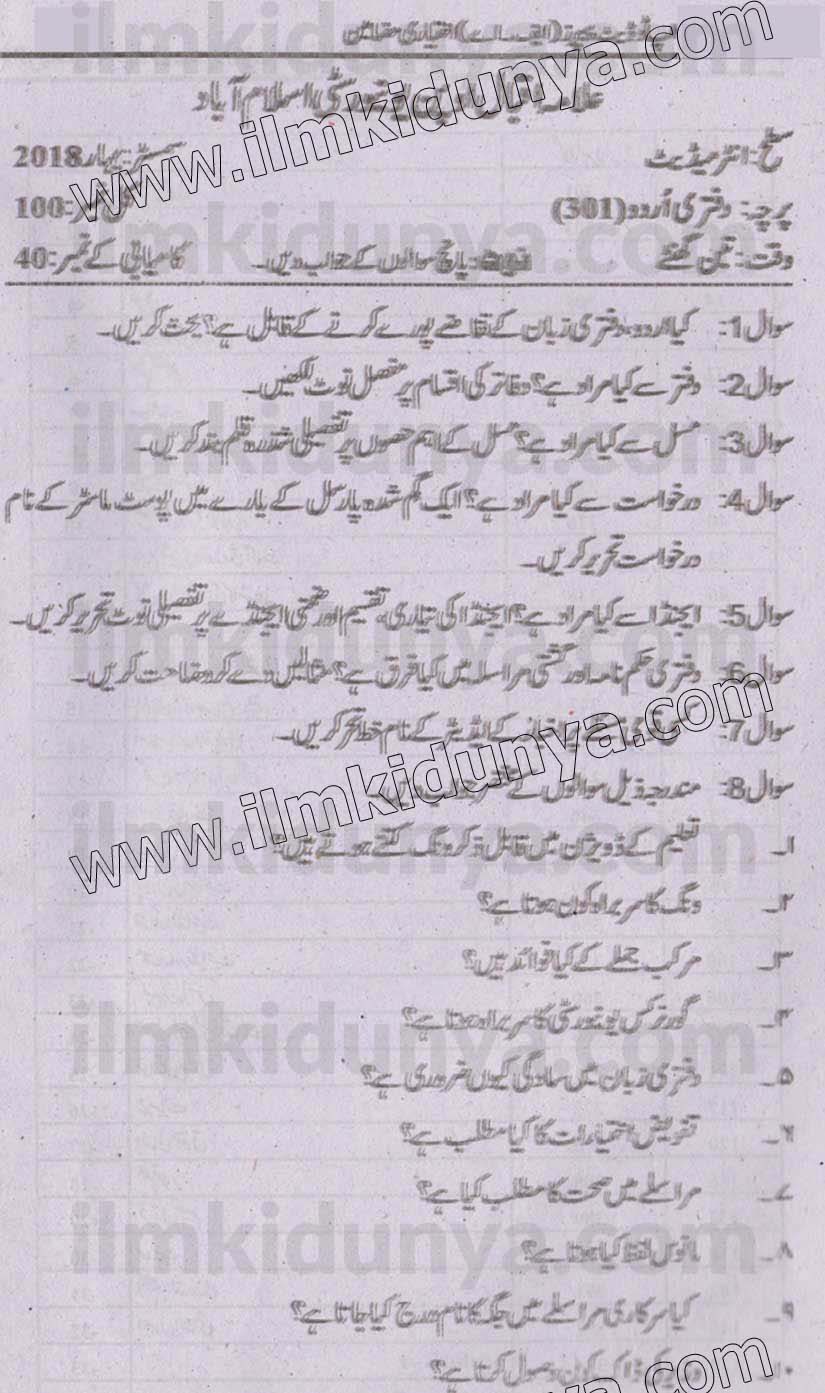 اپ ٹو ڈیٹ پیپرز (ایف۔اے) اختیاری مضامین
علامہ اقبال اوپن یونیورسٹی اسلام آباد
سطح: انٹرمیڈیٹ سمسٹر: بہار 2018
پرچہ: دفتری اُردو (301) کل نمبر: 100
وقت: تین گھنٹے نوٹ: پانچ سوالوں کے جواب دیں۔ کامیابی کے نمبر: 40
سوال 1: کیا اردو، دفتری زبان کے تقاضے پورے کرنے کے قابل ہے؟ بحث کریں۔
سوال 2: دفتر سے کیا مراد ہے؟ دفاتر کی اقسام پر مفصل نوٹ لکھیں۔
سوال 3: مسل سے کیا مراد ہے؟ مسل کے اہم حصوں پر تفصیلی شذرہ قلم بند کریں۔
سوال 4: درخواست سے کیا مراد ہے؟ ایک گم شدہ پارسل کے بارے میں پوسٹ ماسٹر کے نام
درخواست تحریر کریں۔
سوال 5: ایجنڈا سے کیا مراد ہے؟ ایجنڈا کی تیاری، تقسیم اور ضمنی ایجنڈے پر تفصیلی نوٹ تحریر کریں۔
سوال 6: دفتری حکم نامہ اور گشتی مراسلہ میں کیا فرق ہے؟ مثالیں دے کر وضاحت کریں۔
سوال 7: کسی کے ایڈیٹر کے نام خط تحریر کریں۔
سوال 8: مندرجہ ذیل سوالوں کے مختصر جواب دیں۔
۱۔ تعلیم کے ڈویژن میں قابل ذکر ونگ کتنے ہوتے ہیں؟
۲۔ ونگ کا سربراہ کون ہوتا ہے؟
۳۔ مرکب جملے کے کیا فوائد ہیں؟
۴۔ گورنر کس یونیورسٹی کا سربراہ ہوتا ہے؟
۵۔ دفتری زبان میں سادگی کیوں ضروری ہے؟
۶۔ تفویض اختیارات کا کیا مطلب ہے؟
۷۔ مراسلے میں صحت کا مطلب کیا ہے؟
۸۔ مانوس لفظ کیا ہوتا ہے؟
۹۔ کیا سرکاری مراسلے میں جگہ کا نام درج کیا جاتا ہے؟
۱۰۔ ڈاک کون وصول کرتا ہے؟
www.ilmkidunya.com
www.ilmkidunya.com
ilmkidunya.com
ilmkidunya.com
ilmkidunya.com
ilmkidunya.com
ilmkidunya.com
ilmkidunya.com